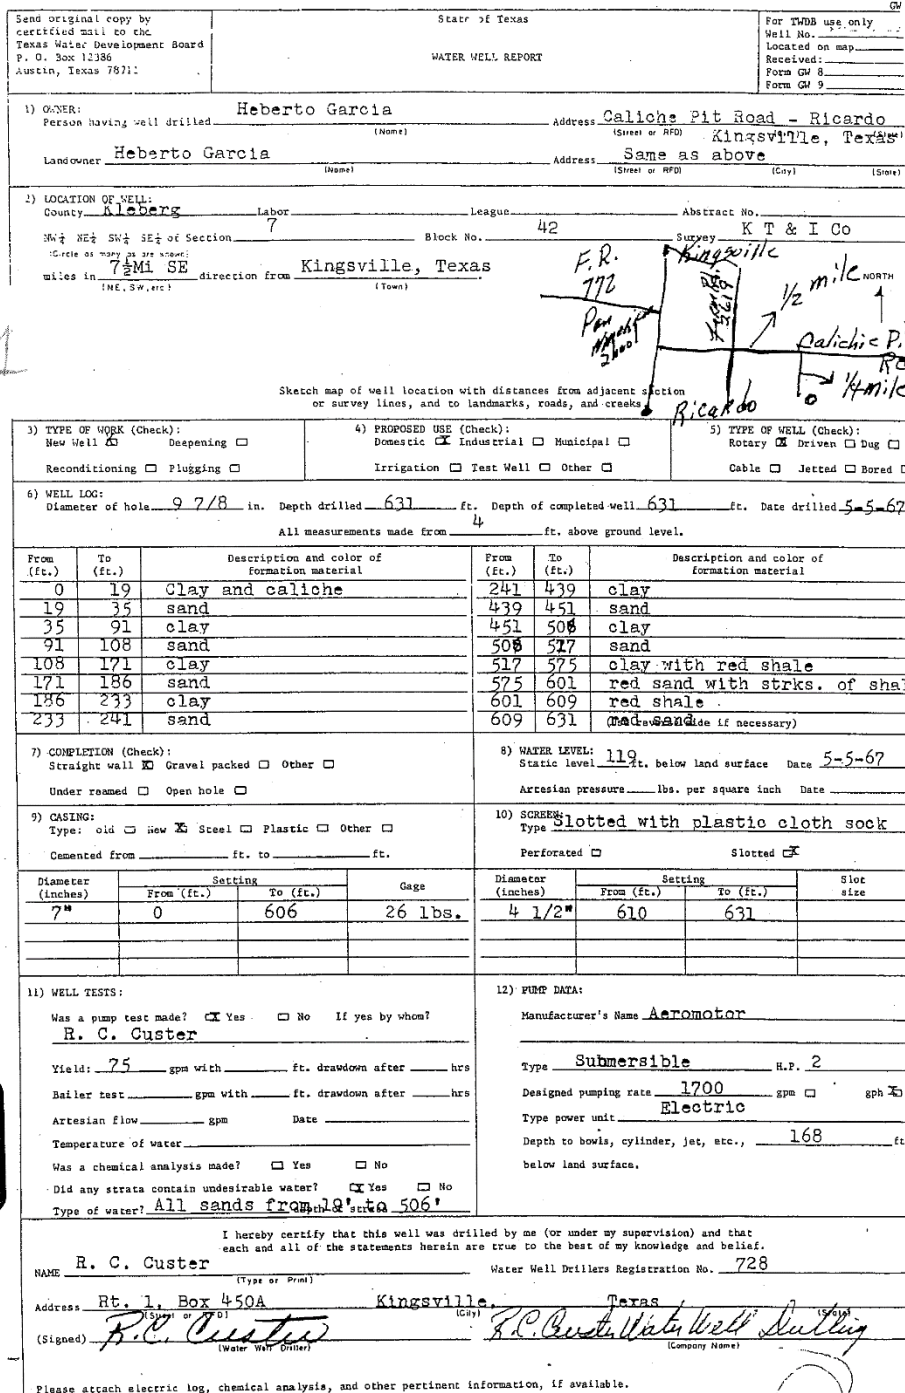 GW
Send original copy by
certified mail to the
Texas Water Development Board
P. O. Box 12386
Austin, Texas 78711
State of Texas
WATER WELL REPORT
For TWDB use only
Well No.
Located on map
Received:
Form GW 8
Form GW 9
1) OWNER:
Person having well drilled Heberto Garcia Address Caliche Pit Road - Ricardo
(Name) (Street or RFD) Kingsville, Texas (State)
Landowner Heberto Garcia Address Same as above
(Name) (Street or RFD) (City) (State)
2) LOCATION OF WELL:
County Kleberg Labor League Abstract No.
NW¼ NE¼ SW¼ SE¼ of Section 7 Block No. 42 Survey K T & I Co
(Circle as many as are known)
7½Mi SE miles in direction from Kingsville, Texas
(NE, SW, etc) (Town)
Kingsville
F.R.
772
1/2 mile
NORTH
Calichie P.
1/4 mile
Ricardo
Sketch map of well location with distances from adjacent section
or survey lines, and to landmarks, roads, and creeks.
3) TYPE OF WORK (Check):
New Well ☒ Deepening ☐
Reconditioning ☐ Plugging ☐
4) PROPOSED USE (Check):
Domestic ☒ Industrial ☐ Municipal ☐
Irrigation ☐ Test Well ☐ Other ☐
5) TYPE OF WELL (Check):
Rotary ☒ Driven ☐ Dug ☐
Cable ☐ Jetted ☐ Bored
6) WELL LOG:
Diameter of hole 9 7/8 in. Depth drilled 631 ft. Depth of completed well 631 ft. Date drilled 5-5-67
All measurements made from 4 ft. above ground level.
From (ft.) To (ft.) Description and color of formation material
0 19 Clay and caliche
19 35 sand
35 91 clay
91 108 sand
108 171 clay
171 186 sand
186 233 clay
233 241 sand
From (ft.) To (ft.) Description and color of formation material
241 439 clay
439 451 sand
451 506 clay
506 517 sand
517 575 clay with red shale
575 601 red sand with strks. of shal
601 609 red shale
609 631 red sand
(Use reverse side if necessary)
7) COMPLETION (Check):
Straight wall ☒ Gravel packed ☐ Other ☐
Under reamed ☐ Open hole ☐
8) WATER LEVEL:
Static level 119 ft. below land surface Date 5-5-67
Artesian pressure lbs. per square inch Date
9) CASING:
Type: old ☐ New ☒ Steel ☐ Plastic ☐ Other ☐
Cemented from ft. to ft.
10) SCREEN:
Type Slotted with plastic cloth sock
Perforated ☐ Slotted ☒
Diameter (inches) Setting From (ft.) To (ft.) Gage
7" 0 606 26 lbs.
Diameter (inches) Setting From (ft.) To (ft.) Slot size
4 1/2" 610 631
11) WELL TESTS:
Was a pump test made? ☒ Yes ☐ No If yes by whom?
R. C. Custer
Yield: 75 gpm with ft. drawdown after hrs
Bailer test gpm with ft. drawdown after hrs
Artesian flow gpm Date
Temperature of water
Was a chemical analysis made? ☐ Yes ☐ No
Did any strata contain undesirable water? ☒ Yes ☐ No
Type of water? All sands from 19' to 506' depth of strata
12) PUMP DATA:
Manufacturer's Name Aeromotor
Type Submersible H.P. 2
Designed pumping rate 1700 gpm ☐ gph ☒
Type power unit Electric
Depth to bowls, cylinder, jet, etc., 168 ft
below land surface.
I hereby certify that this well was drilled by me (or under my supervision) and that
each and all of the statements herein are true to the best of my knowledge and belief.
NAME R. C. Custer Water Well Drillers Registration No. 728
(Type or Print)
Address Rt. 1, Box 450A Kingsville, Texas
(Street or RFD) (City) (State)
(Signed) R.C. Custer R.C. Custer Water Well Drilling
(Water Well Driller) (Company Name)
Please attach electric log, chemical analysis, and other pertinent information, if available.